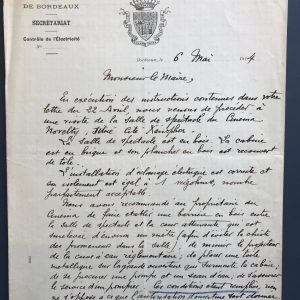 DE BORDEAUX
SECRÉTARIAT
Contrôle de l'Électricité
N°
Bordeaux, le 6 Mai 19 4
Monsieur le Maire,
En exécution des instructions contenues dans votre
lettre du 22 Avril, nous venons de procéder à
une visite de la Salle de spectacle du Cinéma
Novelty,
La Salle de spectacle est en bois. La cabine
est en brique et son plancher en bois est recouvert
de tôle.
L'installation d'éclairage électrique est correcte et
son isolement est égal à 1 mégohms, nombre
parfaitement acceptable.
Nous avons recommandé au propriétaire du
Cinéma de faire établir une barrière en bois entre
la salle de spectacle et la cour attenante qui est
afin d'éviter la chute
des promeneurs dans la salle; de munir le projecteur
de la cuve à eau réglementaire; de placer une toile
métallique sur la grande ouverture qui surmonte la cabine
de se procurer une pompe et un seau d'eau; de s'assurer
le service d'un pompier. Les conditions étant remplies, rien
ne s'oppose à ce que l'autorisation d'ouverture soit donnée